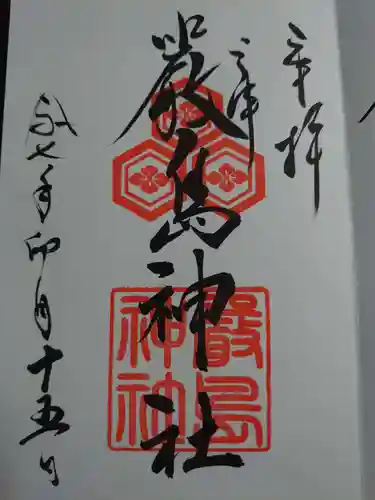 奉拝
三津
嚴島神社
令和七年卯月十五日
嚴島
神社